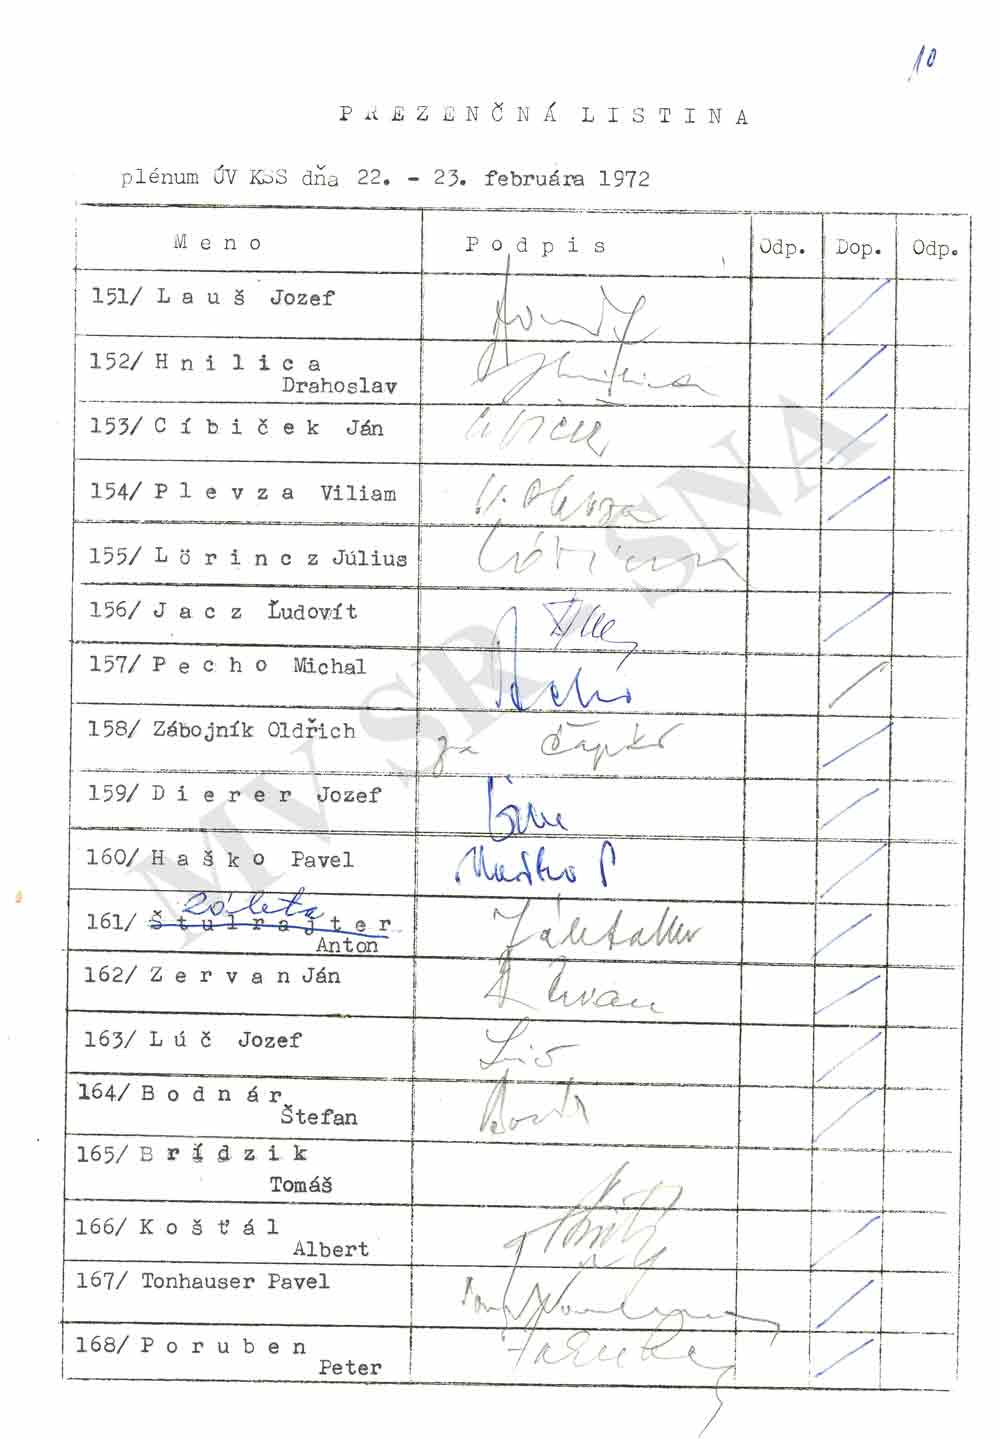 10
PREZENČNÁ LISTINA
plénum ÚV KSS dňa 22. - 23. februára 1972
Meno Podpis Odp. Dop. Odp.
151/ Lauš Jozef
152/ Hnilica
Drahoslav
153/ Cíbiček Ján
154/ Plevza Viliam V. Plevza
155/ Lörincz Július
156/ Jacz Ľudovít
157/ Pecho Michal Pecho
158/ Zábojník Oldřich za Čapka
159/ Dierer Jozef
160/ Haško Pavel Haško P
Záleta
161/ Štulrajter
Anton
162/ Zervan Ján Zervan
163/ Lúč Jozef Lúč
164/ Bodnár
Štefan
165/ Brídzik
Tomáš
166/ Košťál
Albert
167/ Tonhauser Pavel
168/ Poruben
Peter
MV SR SNA